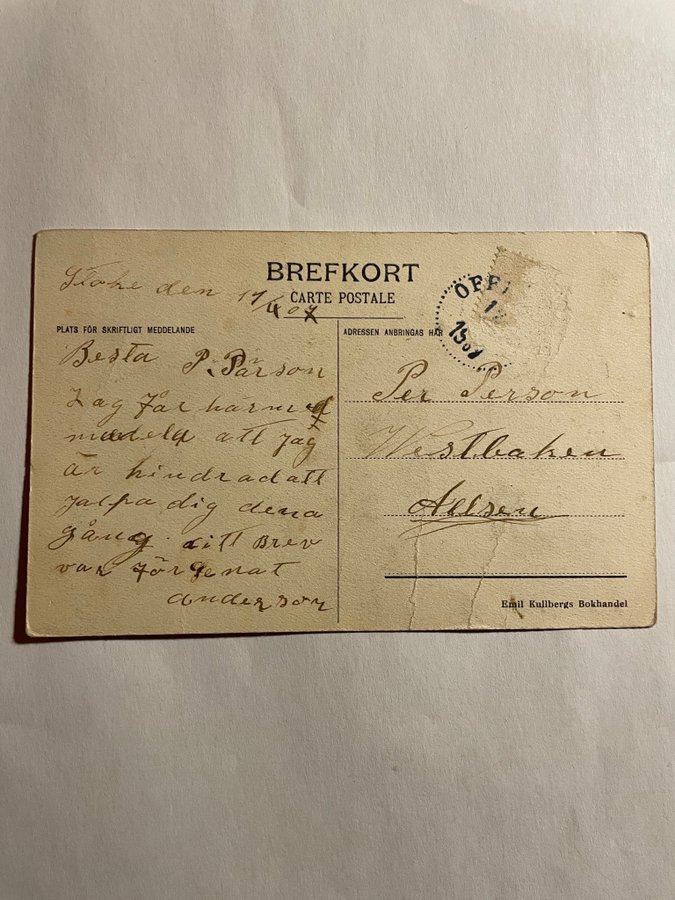 BREFKORT
CARTE POSTALE
den 17/4 07
PLATS FÖR SKRIFTLIGT MEDDELANDE
Besta P. Pärson
Jag får härmed
meeld att jag
är hindrad att
jalpa dig dena
gång. ditt Brev
var förse nat
anderson
ÖFF
1907
ADRESSEN ANBRINGAS HÄR
Per Person
Westbaken
Allsen
Emil Kullbergs Bokhandel